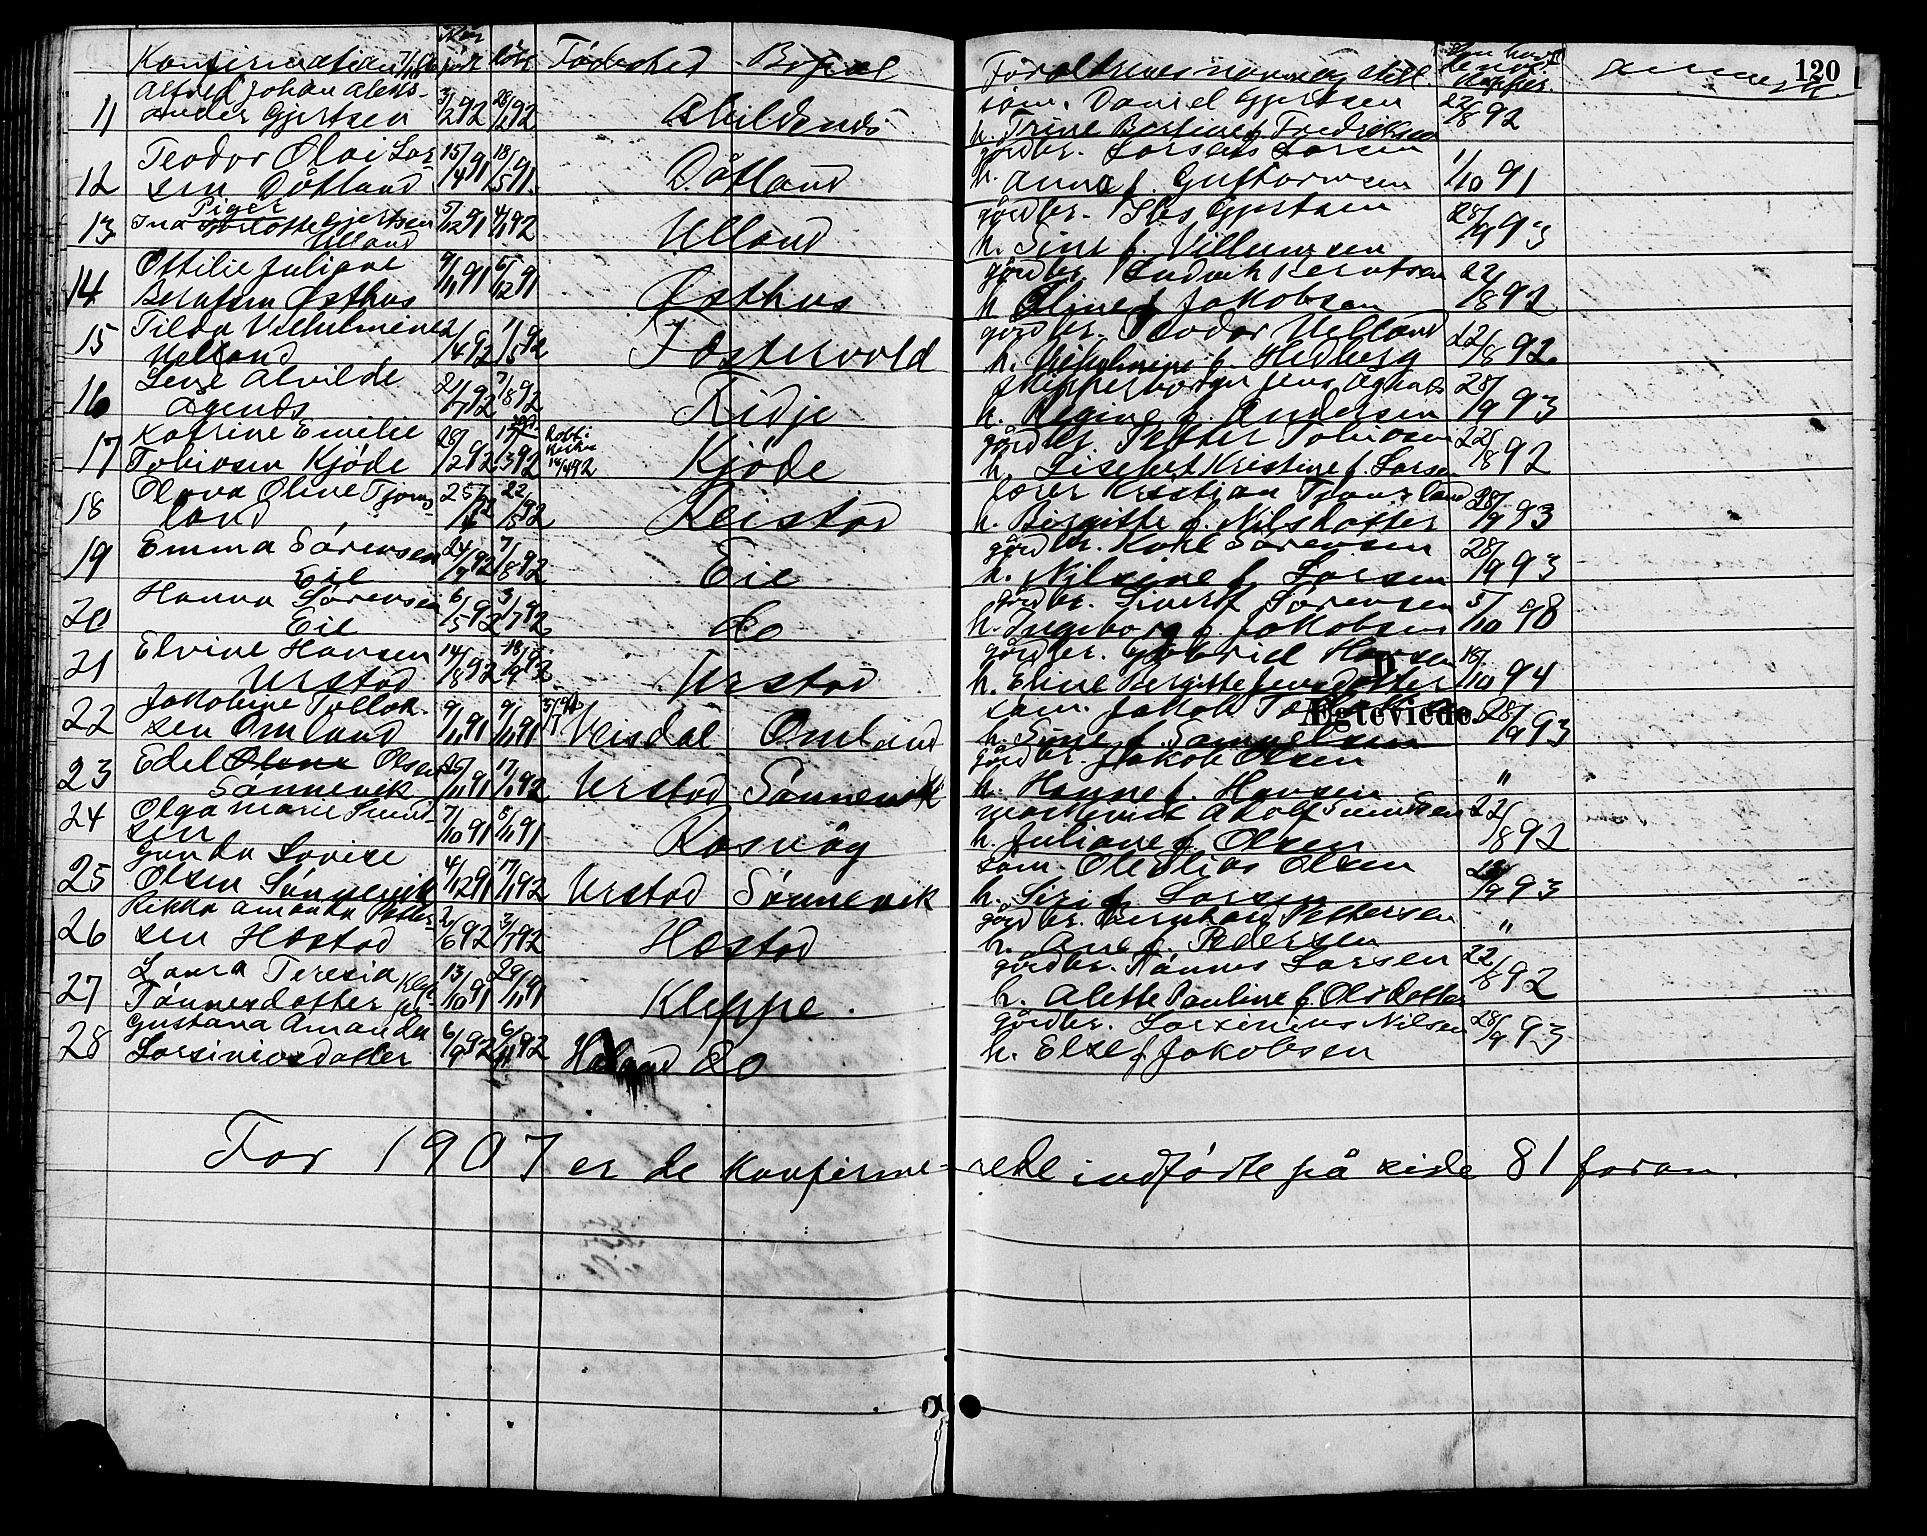 120
Konfirmation
Når født
døbt
Fødested
Bopæl
Forældrenes navn og still.
11 Alfred Johan Aleks-
ander Gjertsen 3/2 92 28/2 92
Abildsnes
søm. Daniel Gjertsen
h. Trine Bertine f. Fredriksen
22/8 92
12 Teodor Olai Lar-
sen Dåtland 15/4 91 18/5 91
Dåtland
gårdbr. Larsens Larsen
h. Anna f. Gustavsen
1/10 91
Piger
13 Ina Gjertsen
Ulland 5/12 91 4/1 92
Ulland
gårdbr. Gjertsen
h. Sine f. Villumsen
28/9 93
14 Ottilie Juliane
Berntsen Østhus 9/11 91 6/12 91
Østhus
gårdbr. Ludvik Berntsen
h. Oline f. Jakobsen
22/8 92
15 Tilda Vilhelmine
Uelland 2/4 92 1/5 92
Fæstervold
gårdbr. Teodor Uelland
h. Vilhelmine f. Hedberg
22/8 92
16 Lene Alvilde
Ågends 2/7 92 7/8 92
Kidje
Jens
h. Regine f. Andersen
28/9 93
17 Katrine Emilie
Tobiasen Kjöde 28/2 92 13/3 92
Kjöde
gårdbr. Petter Tobiasen
h. Lisebet Kristine f. Larsen
22/8 92
18 Olava Oline Tjoms-
land 22/5 92
Reistad
lærer Kristian Tjomsland
h. Birgitte f. Nilsdotter
28/9 93
19 Emma Sörensen
Eie 24/7 92 7/8 92
Eie
gårdbr. Karl Sörensen
h. Nilsine f. Larsen
28/9 93
20 Hanna Sörensen
Eie 6/5 92 3/7 92
do
gårdbr. Sivert Sörensen
h. Ingeborg f. Jakobsen
5/10 98
21 Elvine Hansen
Urstad 14/8 92 18/9 92
Urstad
gårdbr. Gabriel Hansen
h. Eline Bergitte Jensdotter
18/10 94
22 Jakobine Tollak-
sen Omland 9/11 91 9/11 91
Veisdal Omland
søm. Jakob
Ægteviede.
h. Sine f. Samuelsen
28/9 93
23 Edel Olsen
Sönnevik 25/11 91 17/1 92
Urstad Sönnevik
gårdbr. Jakob Olsen
h. Hanne f. Hansen
"
24 Olga Marie Smid-
sen 7/10 91 8/11 91
Rasvåg
Adolf
h. Juliane f. Olsen
22/8 92
25 Gunda Lovise
Olsen Sönnevik 4/12 91 17/1 92
Urstad Sönnevik
søm. Ole Elias Olsen
h. Siri f. Larsen
28/9 93
26 Rikka Amanda Petter-
sen Hæstad 2/6 92 3/7 92
Hæstad
gårdbr. Bernhard Pettersen
h. Ane f. Pedersen
"
27 Laura Teresia
Tönnesdatter 13/10 91 29/11 91
Kleppe.
gårdbr. Tönnes Larsen
h. Alette Pauline f. Olsdotter
22/8 92
28 Gustava Amanda
Larsiniusdatter 6/9 92 6/11 92
do
gårdbr. Larsinius Nilsen
h. Else f. Jakobsen
28/9 93
For 1907 er de konfirme-
rede indförte på side 81 foran.